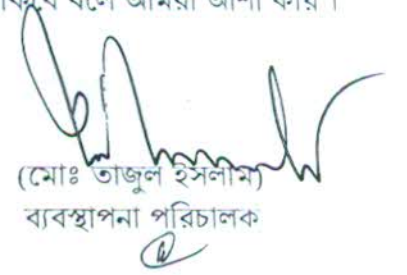 বলে আমরা আশা করি।
(মোঃ তাজুল ইসলাম)
ব্যবস্থাপনা পরিচালক